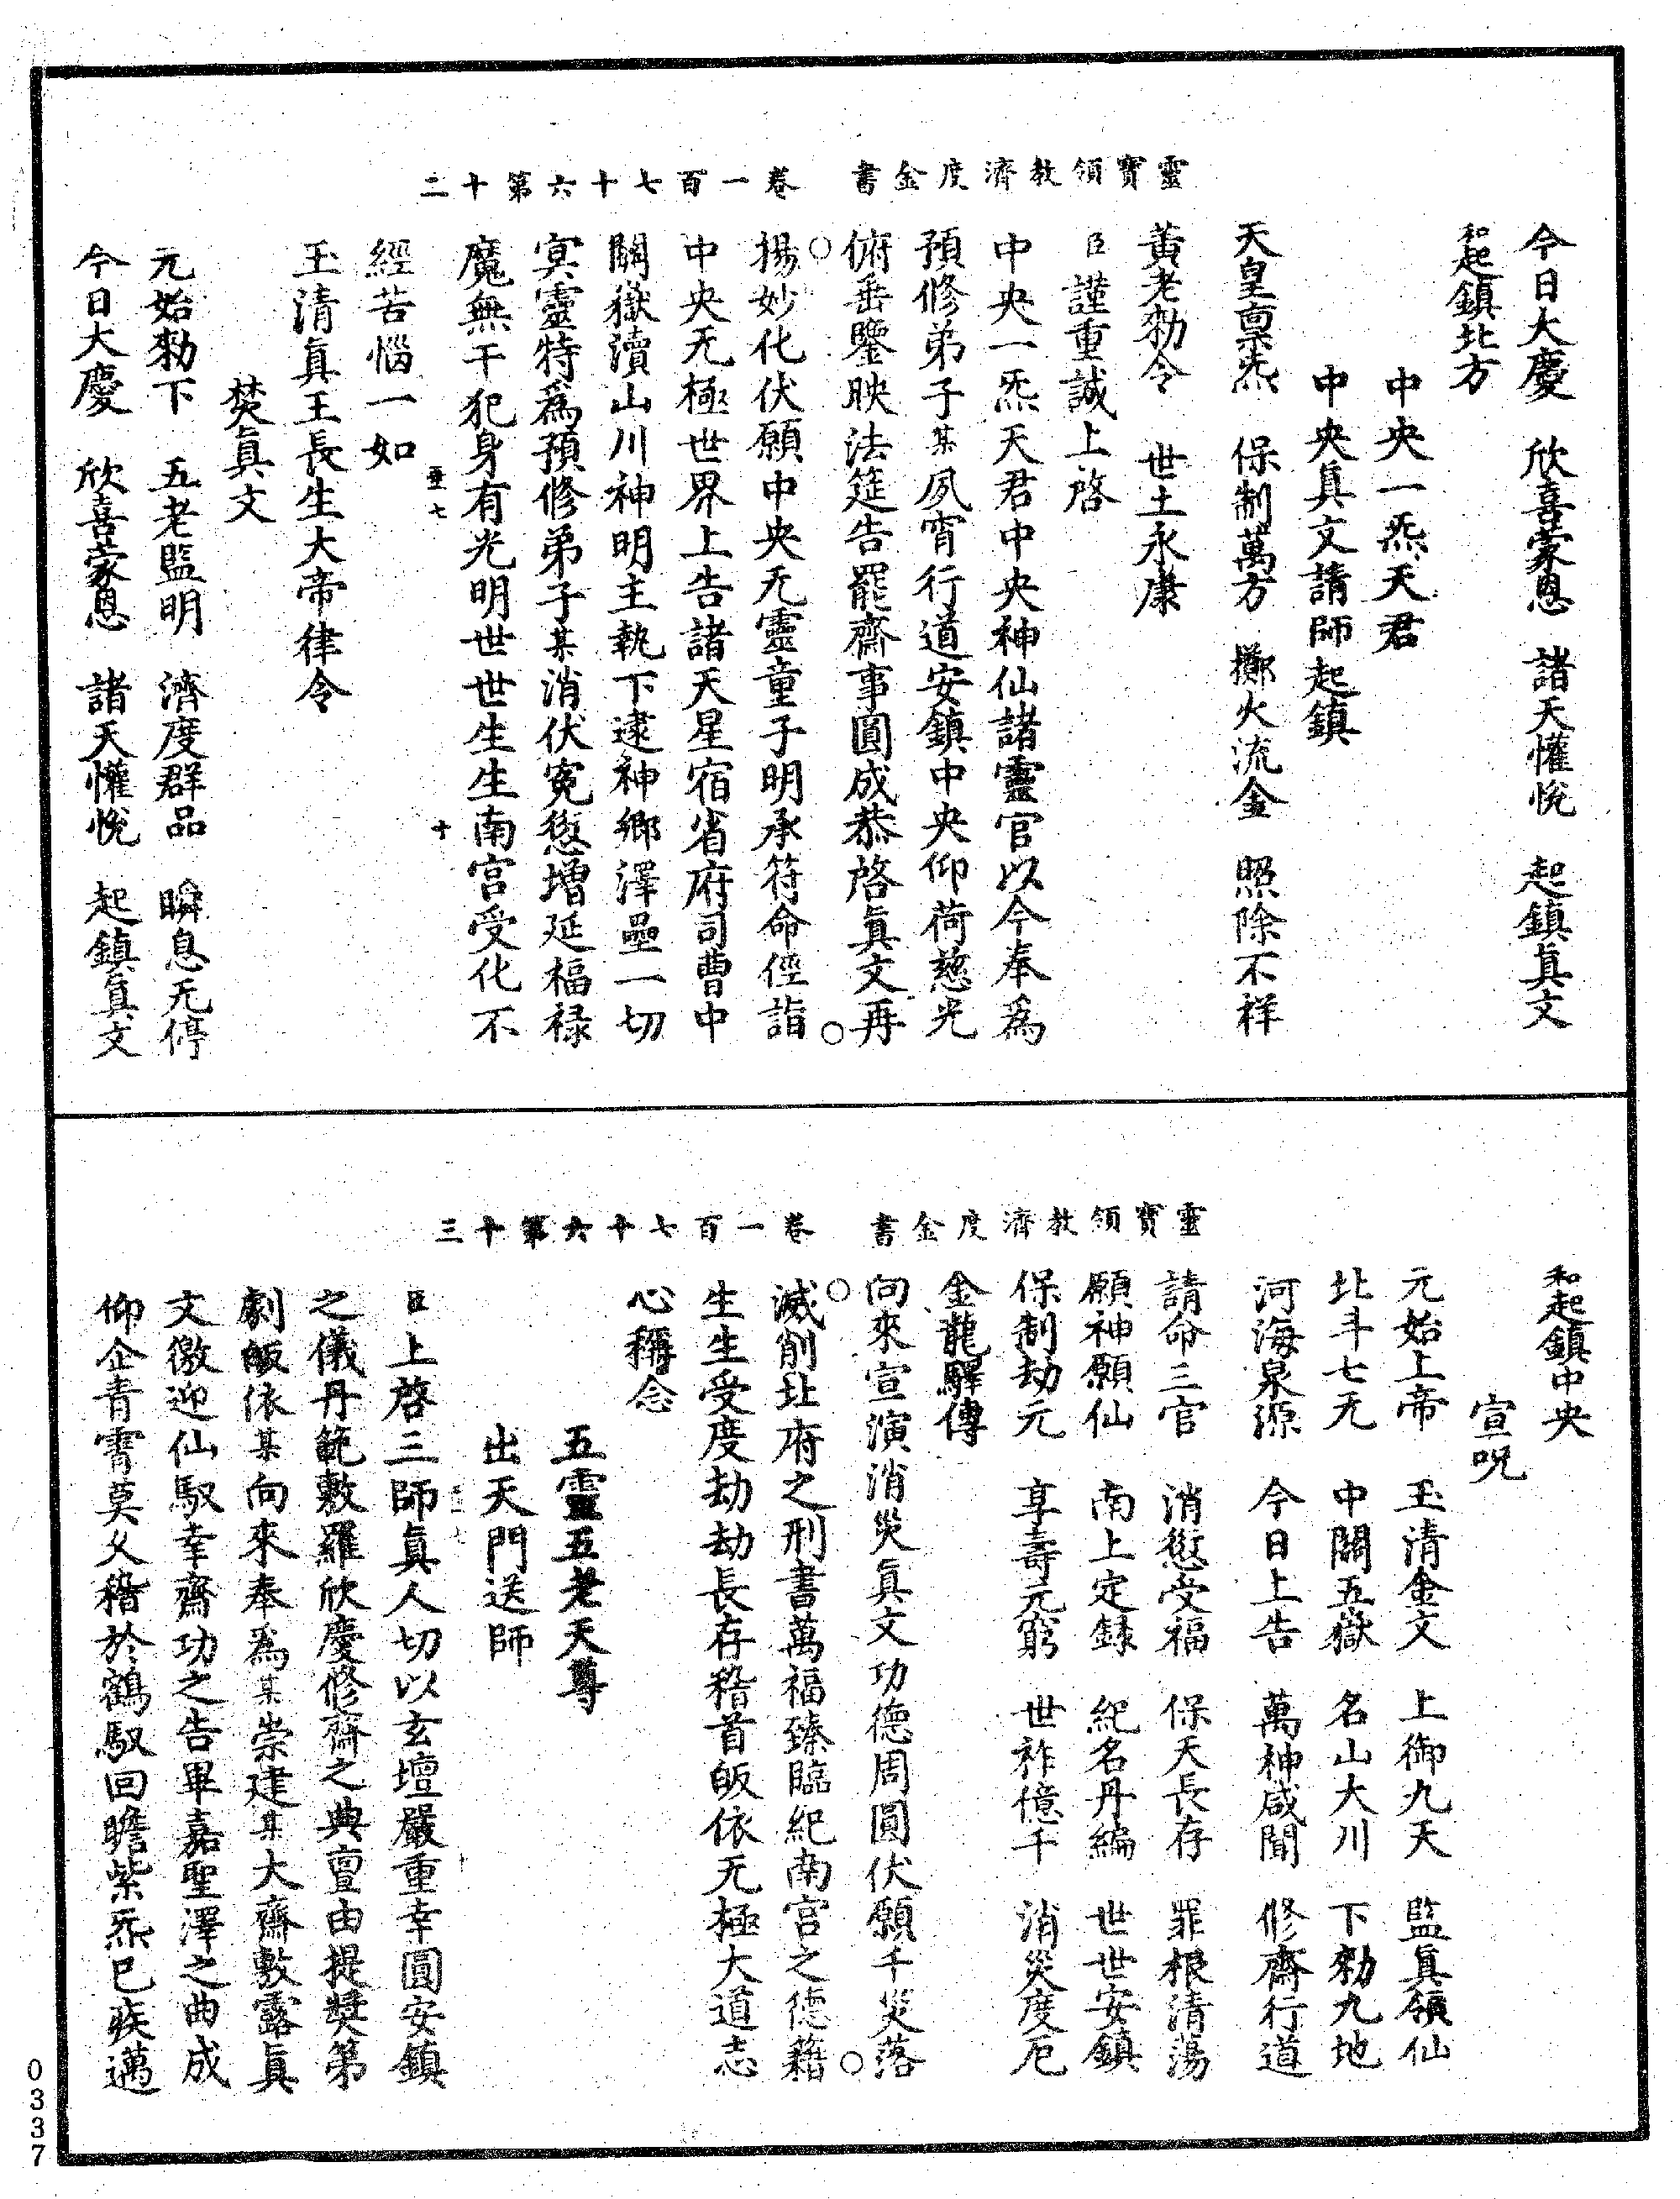 靈寶領教濟度金書　卷一百七十六第十二
今日大慶　欣喜蒙恩　諸天懽悅　起鎮真文
和起鎮北方
中央一炁天君
中央真文請師起鎮
天皇稟炁　保制萬方　擲火流金　照除不祥
黃老勑令　世土永康
臣謹重誠上啓
中央一炁天君中央神仙諸靈官以今奉爲
預修弟子某夙宵行道安鎮中央仰荷慈光
俯垂鑒映法筵告罷齋事圓成恭啓真文再
揚妙化伏願中央无靈童子明承符命徑詣
中央无極世界上告諸天星宿省府司曹中
關嶽瀆山川神明主執下逮神鄉澤壘一切
冥靈特爲預修弟子某消伏寃愆增延福祿
魔無干犯身有光明世世生生南宮受化不
經苦惱一如
玉清真王長生大帝律令
焚真文
元始勑下　五老監明　濟度群品　瞬息无停
今日大慶　欣喜蒙恩　諸天懽悅　起鎮真文
七
十
靈寶領教濟度金書　卷一百七十六第十三
和起鎮中央
宣呪
元始上帝　玉清金文　上御九天　監真領仙
北斗七元　中關五嶽　名山大川　下勑九地
河海泉源　今日上告　萬神咸聞　修齋行道
請命三官　消愆受福　保天長存　罪根清蕩
願神願仙　南上定錄　紀名丹編　世世安鎮
保制劫元　享壽元窮　世祚億千　消災度厄
金龍驛傳
向來宣演消災真文功德周圓伏願千災落
滅削北府之刑書萬福臻臨紀南宮之德籍
生生受度劫劫長存稽首皈依无極大道志
心稱念
五靈五老天尊
出天門送師
臣上啓三師真人切以玄壇嚴重幸圓安鎮
之儀丹範敷羅欣慶修齋之典亶由提奬第
劇皈依某向來奉爲某崇建某大齋敷露真
文徼迎仙馭幸齋功之告畢嘉聖澤之曲成
仰企青霄莫乆稽於鶴馭回瞻紫炁巳疾邁
0337